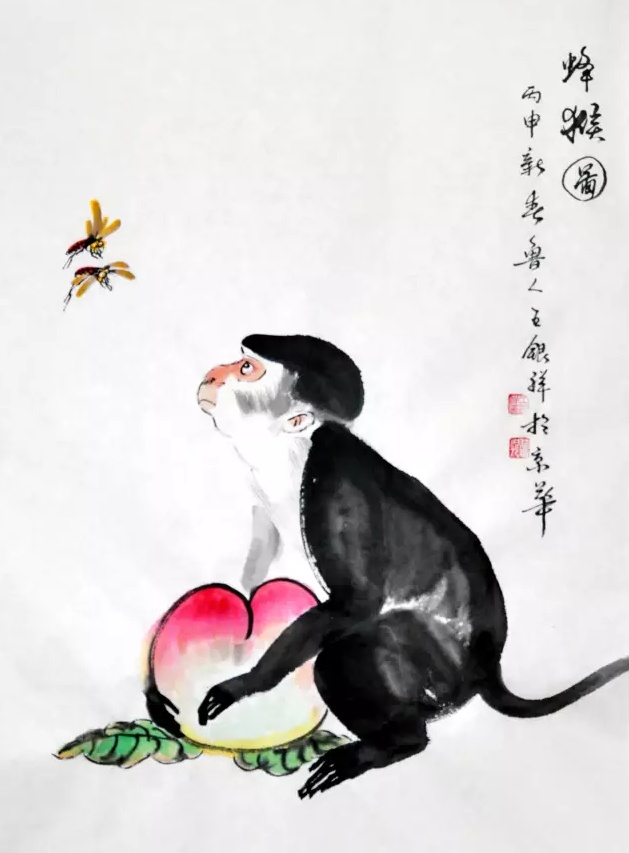 蜂猴圖
丙申新春魯人王銀祥於京華